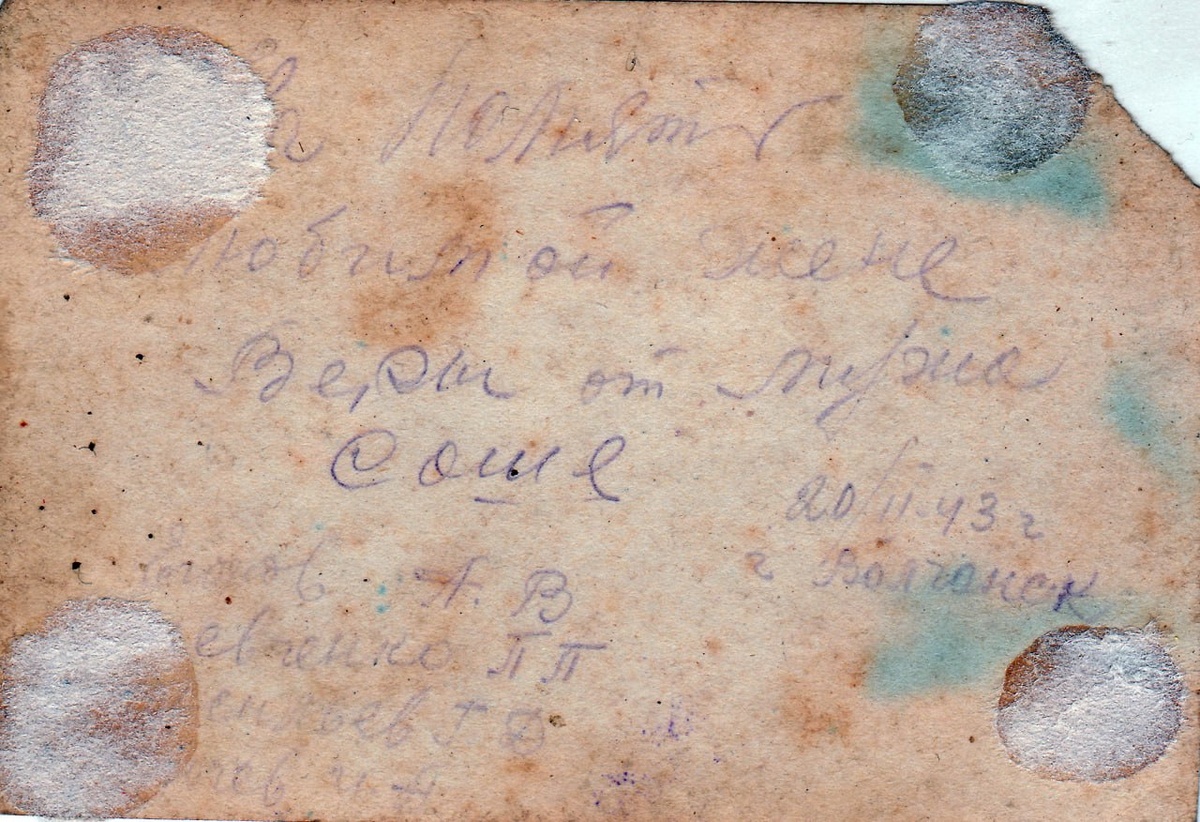 на помять
любимой жене
Веры от мужа
Соше
20/II-43 г
г Волчанск
А. В
евченко П П
ентьев Г Д